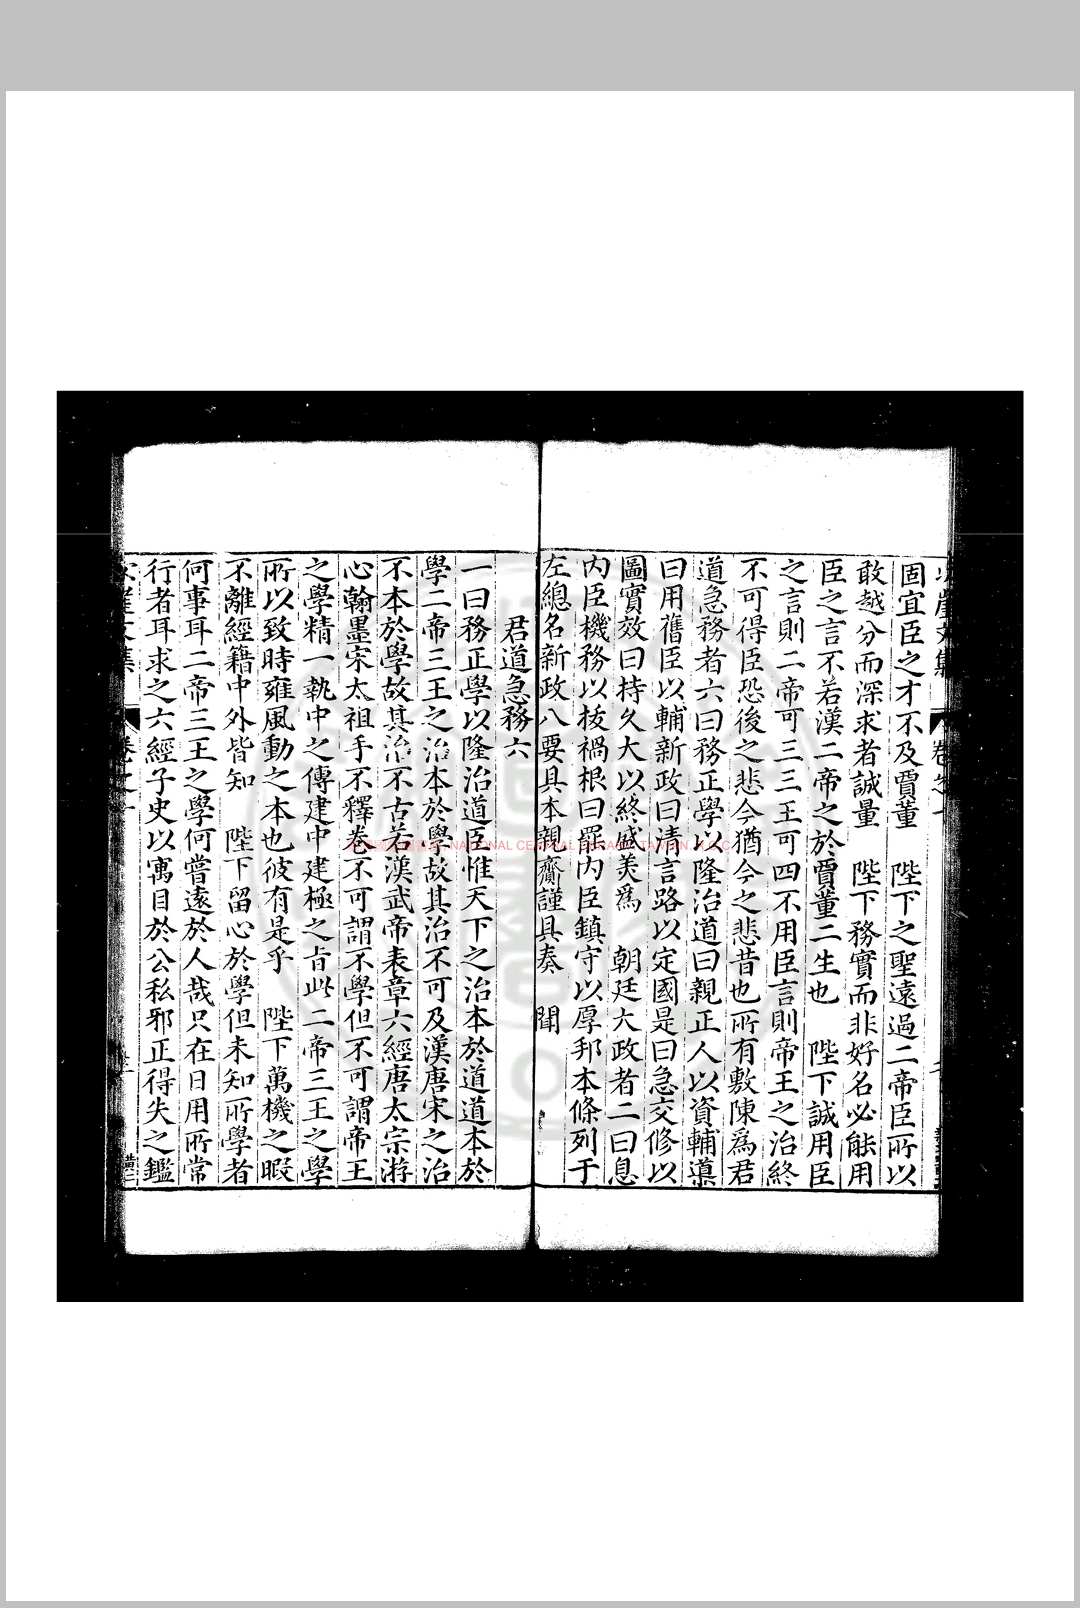 固宜臣之才不及賈董 陛下之聖遠過二帝臣所以
敢越分而深求者誠量 陛下務實而非好名必能用
臣之言不若漢二帝之於賈董二生也 陛下誠用臣
之言則二帝可三三王可四不用臣言則帝王之治終
不可得臣恐後之悲今猶今之悲昔也所有敷陳爲君
道急務者六曰務正學以隆治道曰親正人以資輔導
曰用舊臣以輔新政曰清言路以定國是曰急交修以
圖實效曰持久大以終盛美爲 朝廷大政者二曰息
內臣機務以拔禍根曰罷內臣鎮守以厚邦本條列于
左總名新政八要具本親齎謹具奏 聞
君道急務六
一曰務正學以隆治道臣惟天下之治本於道道本於
學二帝三王之治本於學故其治不可及漢唐宋之治
不本於學故其治不古若漢武帝表章六經唐太宗游
心翰墨宋太祖手不釋卷不可謂不學但不可謂帝王
之學精一執中之傳建中建極之旨此二帝三王之學
所以致時雍風動之本也彼有是乎 陛下萬機之暇
不離經籍中外皆知 陛下留心於學但未知所學者
何事耳二帝三王之學何嘗遠於人哉只在日用所常
行者耳求之六經子史以寓目於公私邪正得失之鑑
文集 卷之
NATIONAL CENTRAL LIBRARY, TAIWAN, R.O.C